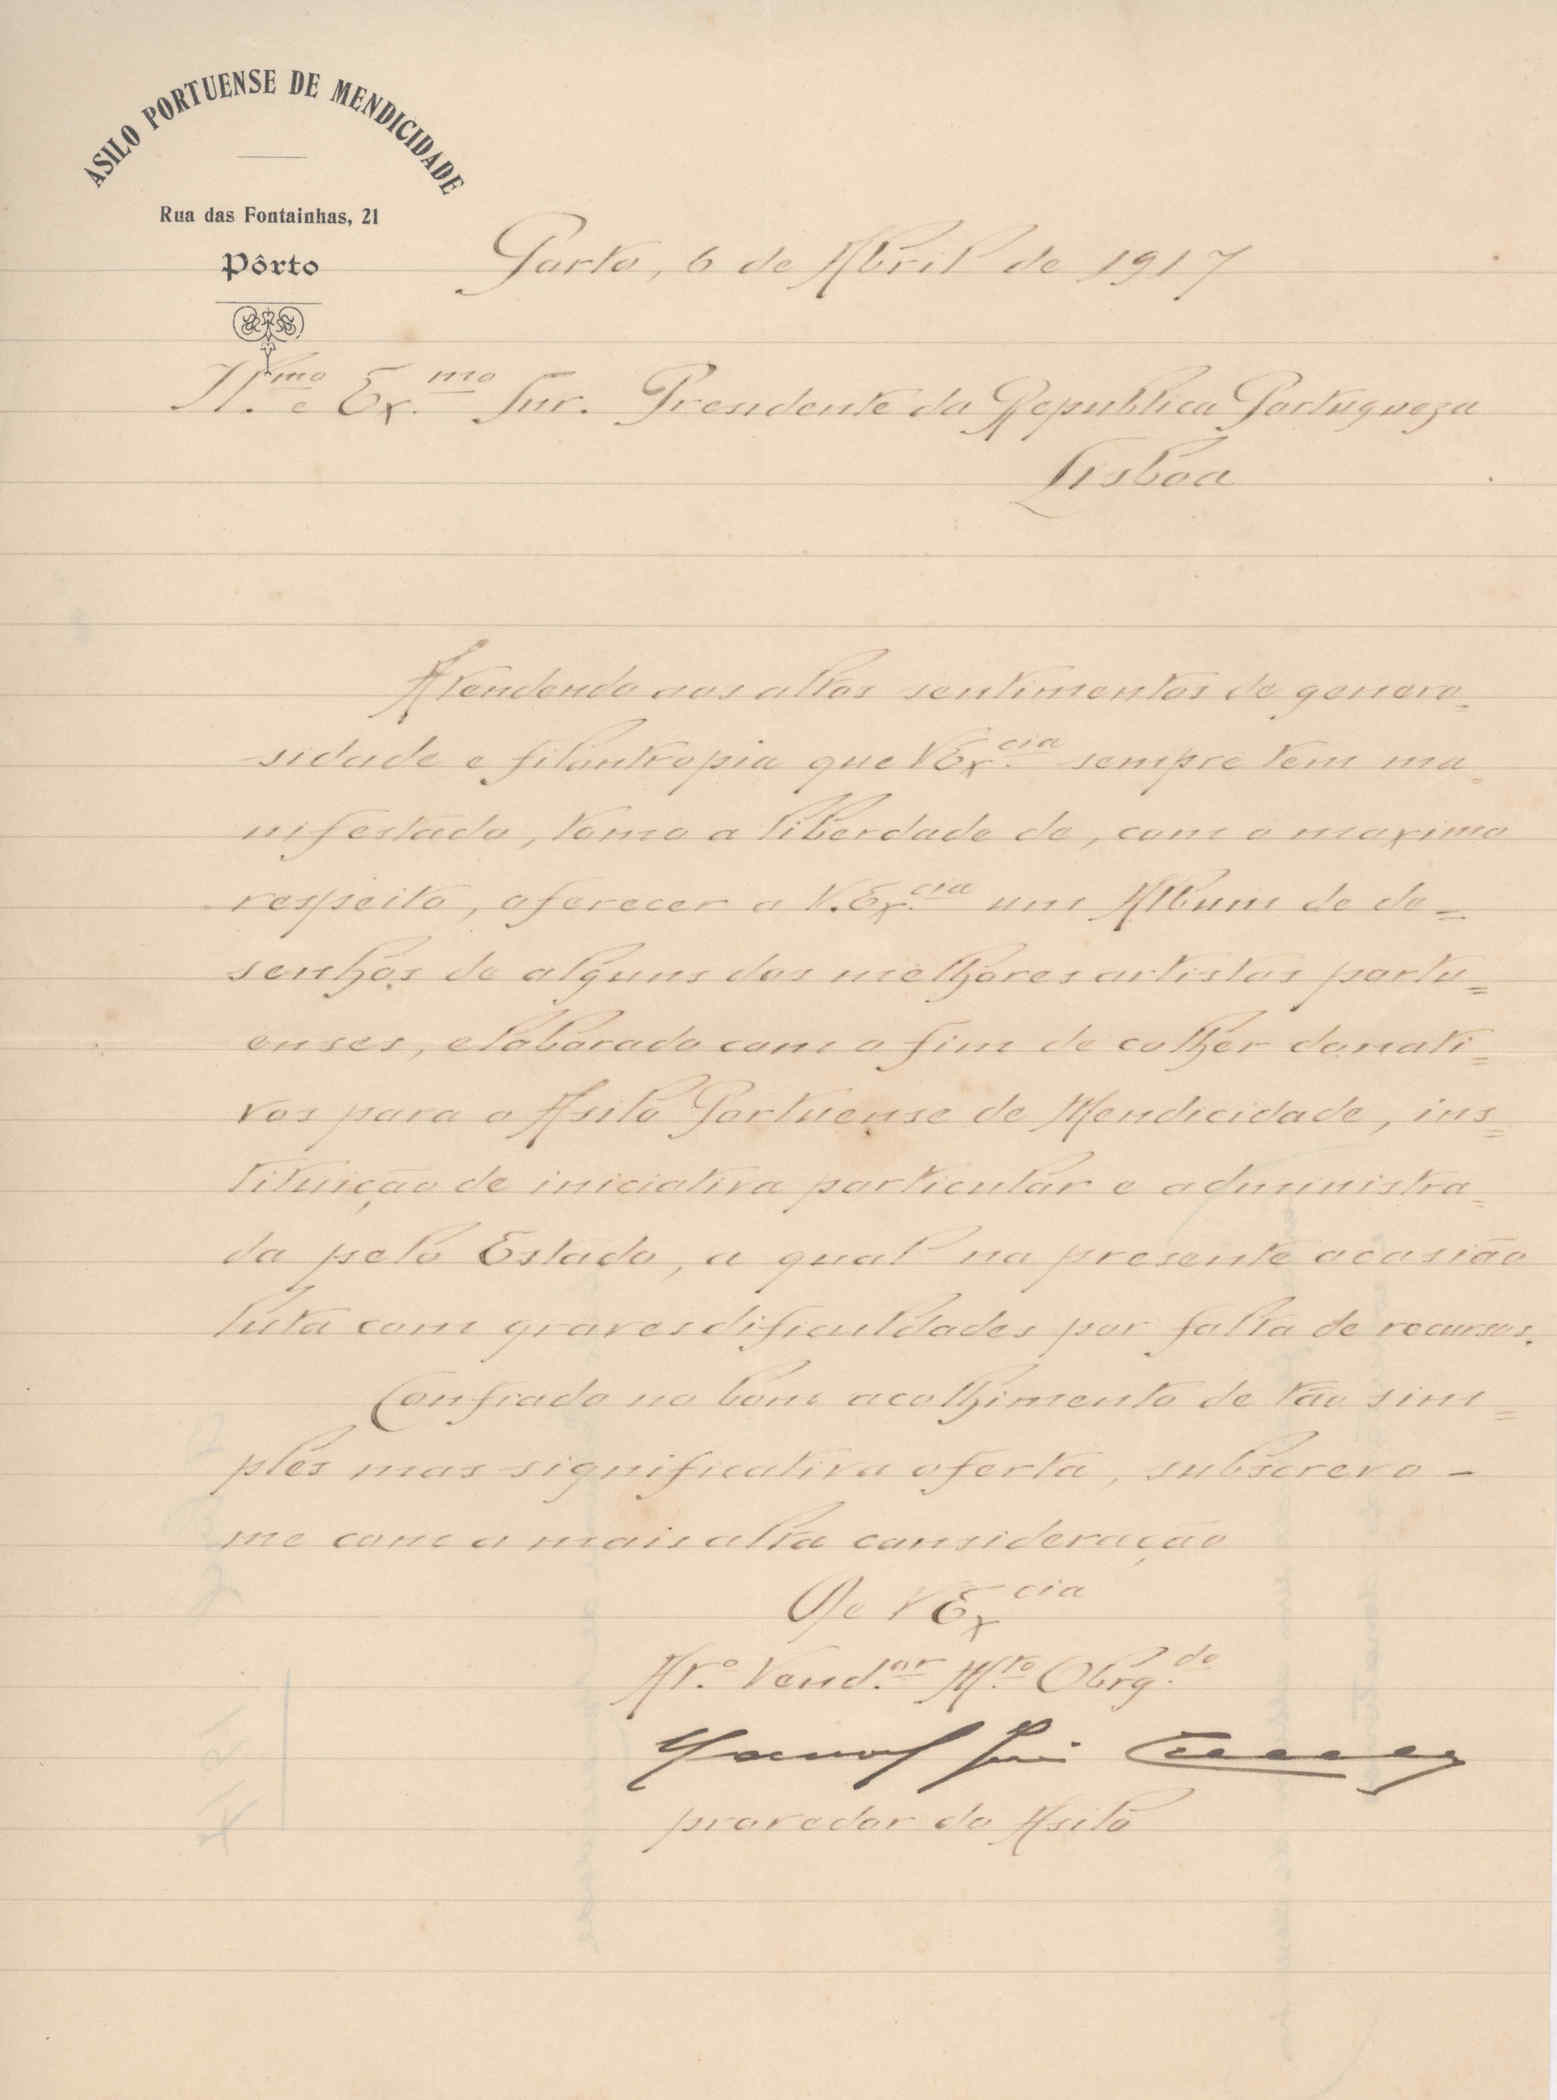 ASILO PORTUENSE DE MENDICIDADE
Rua das Fontainhas, 21
Pôrto
Porto, 6 de Abril de 1917
Il.mo e Ex.mo Snr. Presidente da Republica Portugueza
Lisboa
Atendendo aos altos sentimentos de genero-
sidade e filantropia que V Ex.cia sempre tem ma-
nifestado, tomo a liberdade de, com o maximo
respeito, oferecer a V. Ex.cia um Album de de=
senhos de alguns dos melhores artistas portu=
enses, elaborado com o fim de colher donati=
vos para o Asilo Portuense de Mendicidade, ins=
tituição de iniciativa particular e administra=
da pelo Estado, a qual na presente ocasião
luta com graves dificuldades por falta de recursos.
Confiado no bom acolhimento de tão sim=
ples mas significativa oferta, subscrevo-
me com a mais alta consideração
De V Excia
At.º Vend.or M.to Obrg.do
Manoel
provedor do Asilo